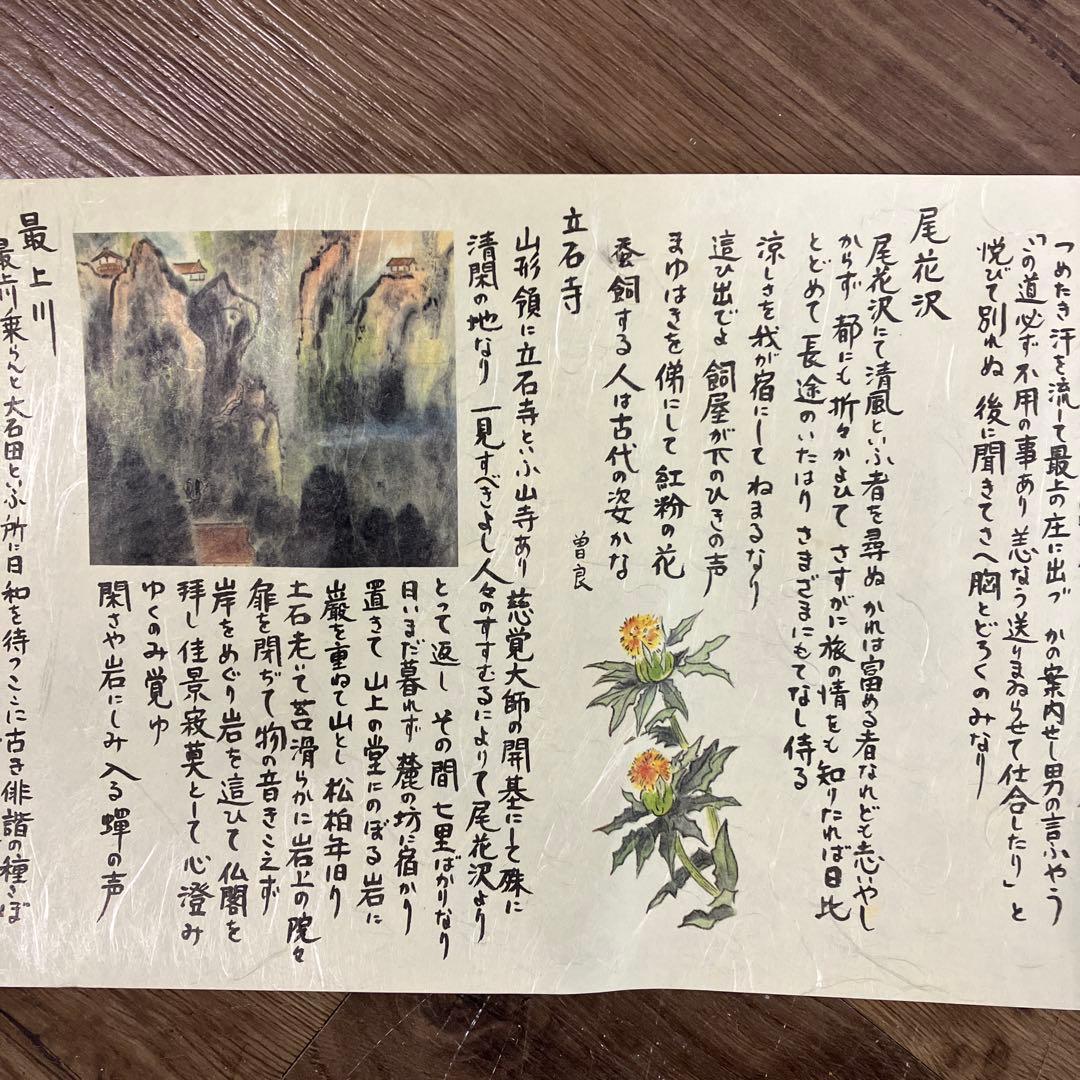 つめたき汗を流して最上の庄に出づ かの案内せし男の言ふやう
「この道必ず不用の事あり 恙なう送りまゐらせて仕合したり」と
悦びて別れぬ 後に聞きてさへ胸とどろくのみなり
尾花沢
尾花沢にて清風といふ者を尋ぬ かれは富める者なれども志いやし
からず 都にも折々かよひて さすがに旅の情をも知りたれば日比
とどめて 長途のいたはり さまざまにもてなし侍る
涼しさを我が宿にして ねまるなり
這ひ出でよ 飼屋が下のひきの声
まゆはきを俤にして 紅粉の花
蚕飼する 人は古代の姿かな
曽良
立石寺
山形領に立石寺といふ山寺あり 慈覚大師の開基にして殊に
清閑の地なり 一見すべきよし人々のすすむるによりて尾花沢より
とって返し その間 七里ばかりなり
日いまだ暮れず 麓の坊に宿かり
置きて 山上の堂にのぼる 岩に
巌を重ねて山とし 松柏年旧り
土石老いて苔滑らかに岩上の院々
扉を閉ぢて 物の音きこえず
岸をめぐり 岩を這ひて 仏閣を
拝し 佳景寂莫として 心澄み
ゆくのみ覚ゆ
閑さや岩にしみ入る蟬の声
最上川
最上川乗らんと大石田といふ所に日和を待つ ここに古き俳諧の種こぼ